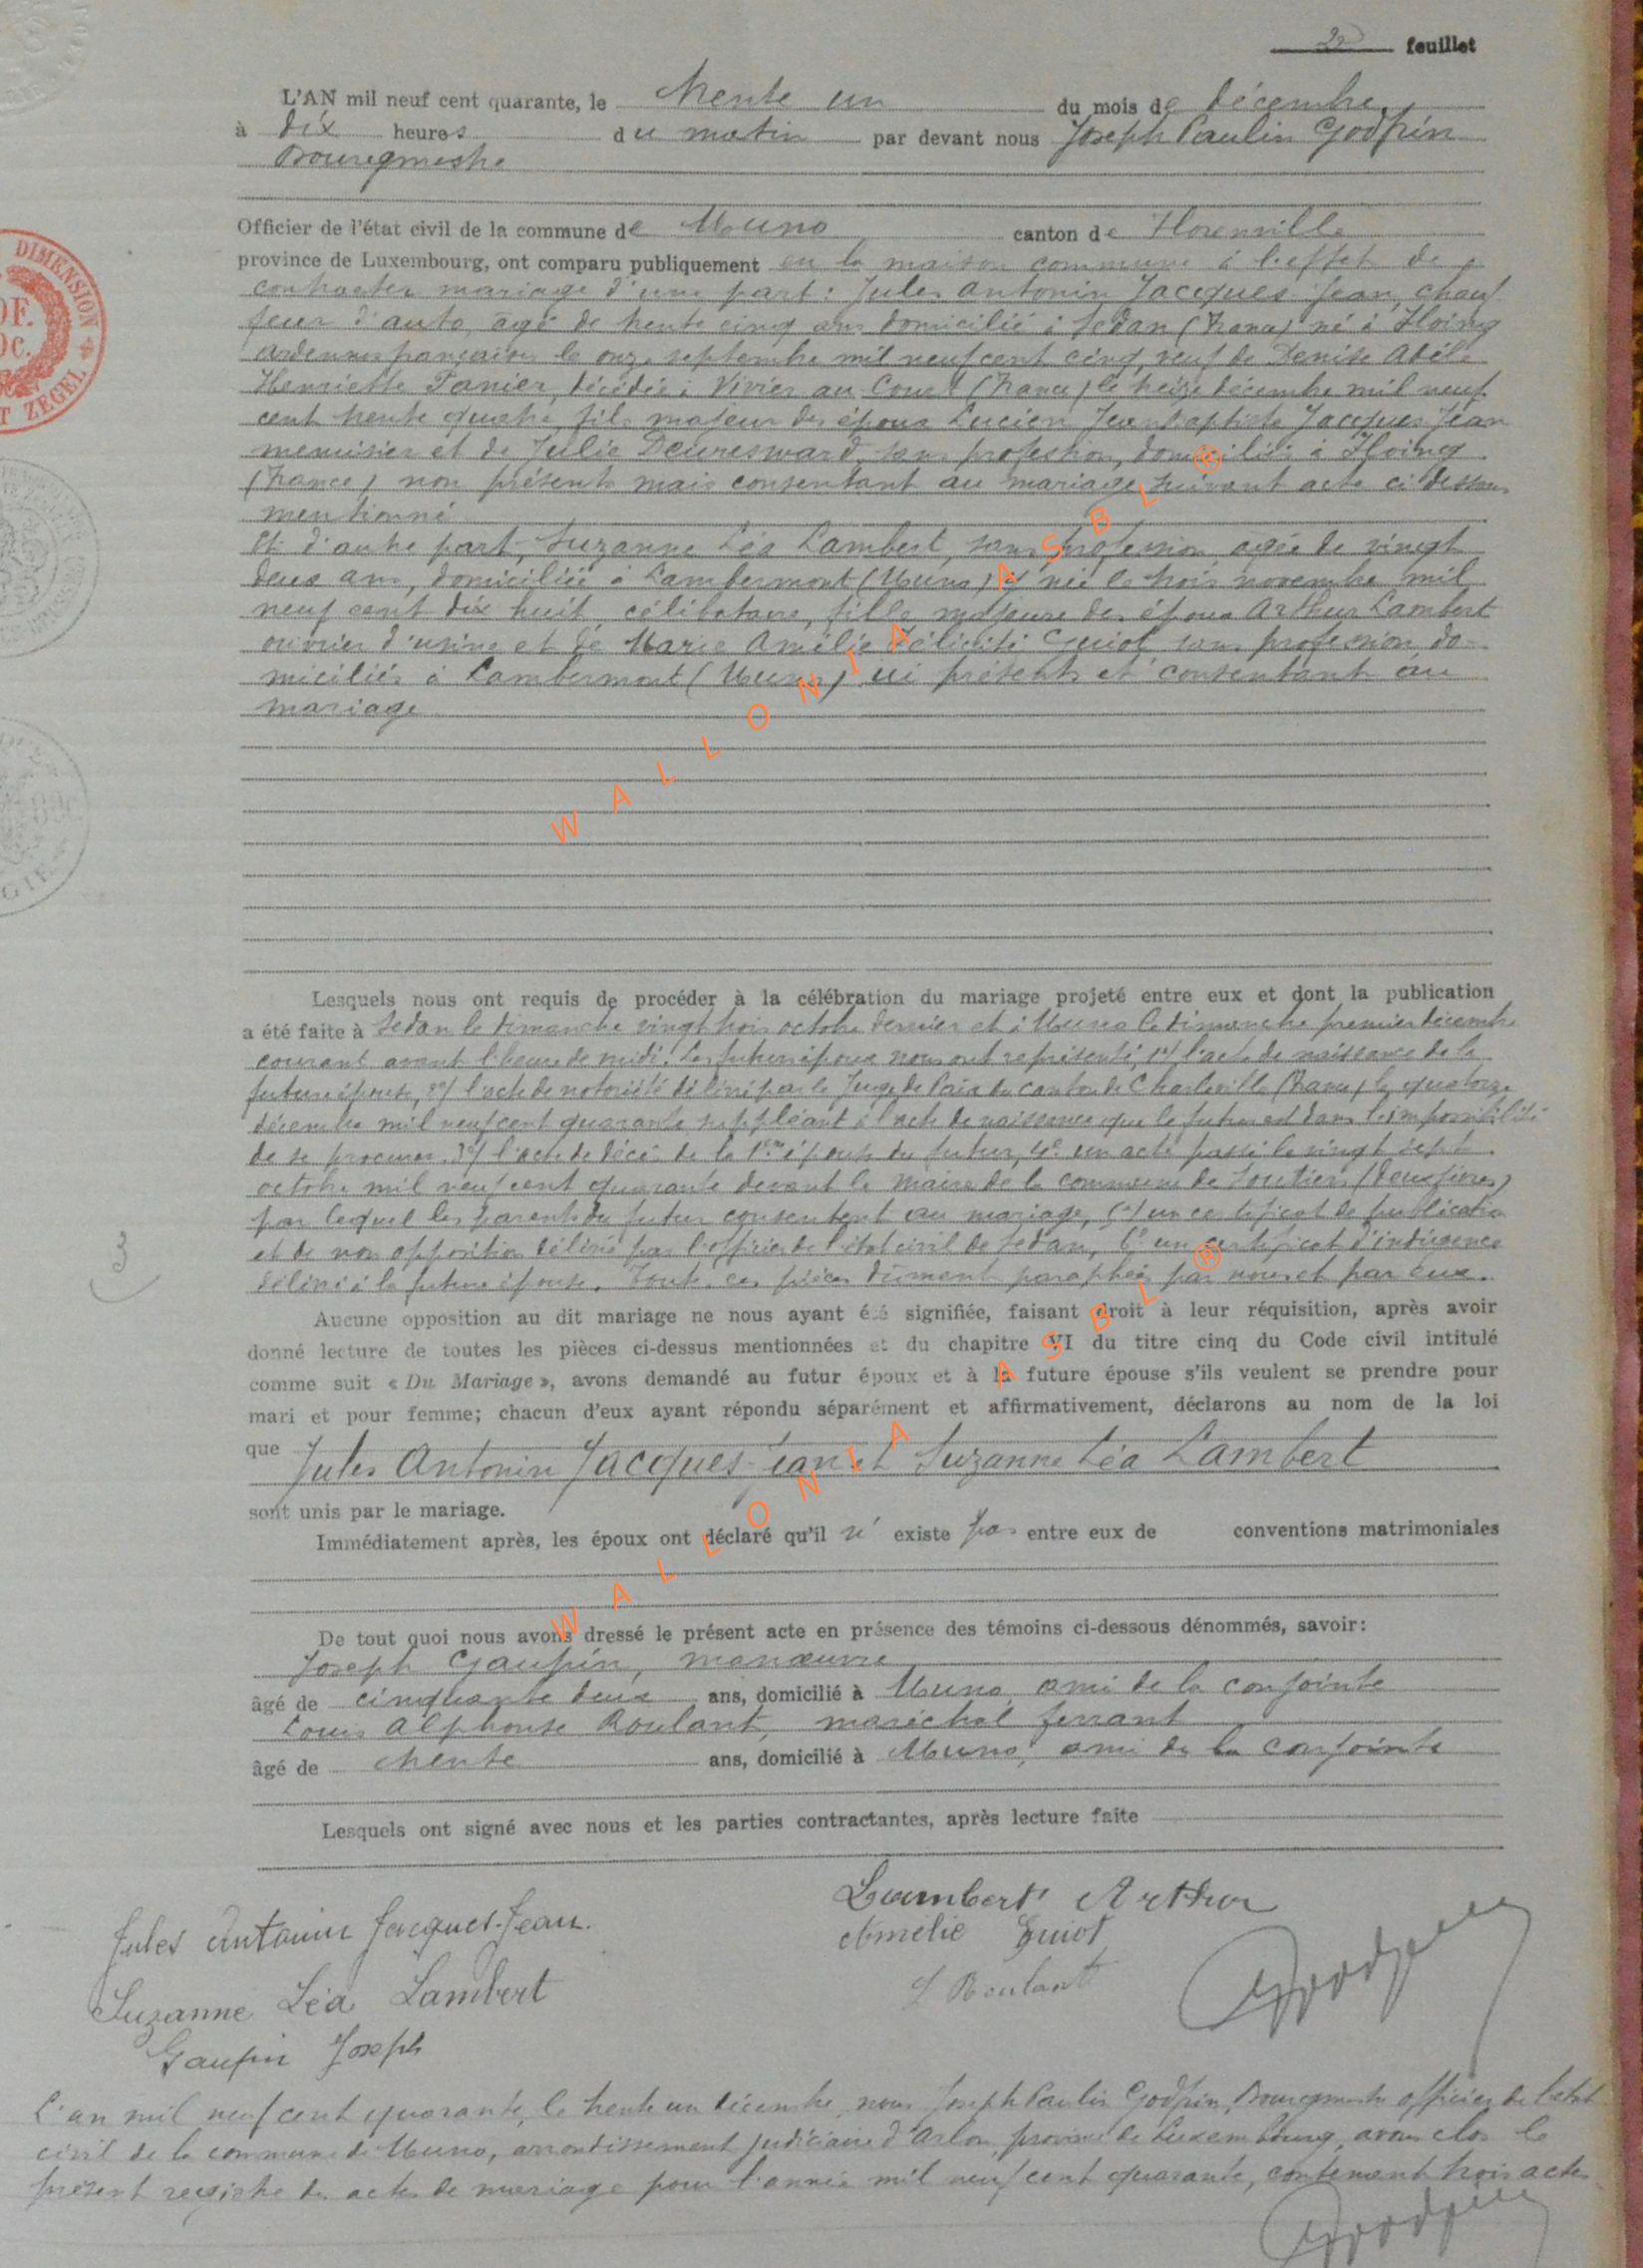 2e feuillet
L'AN mil neuf cent quarante, le trente un du mois de décembre,
à dix heures du matin par devant nous Joseph Paulin Godfrin
Bourgmestre
Officier de l'état civil de la commune de Muno canton de Florenville
province de Luxembourg, ont comparu publiquement en la maison commune à l'effet de
contracter mariage d'une part : Jules Antonin Jacques-Jean, chauf
feur d'auto, âgé de trente cinq ans domicilié à Sedan (France) né à Floing
Ardennes françaises le onze septembre mil neuf cent cinq, veuf de Denise Adèle
Henriette Panier, décédée à Vivier au Court (France) le treize décembre mil neuf
cent trente quatre, fils majeur des époux Lucien Jean Baptiste Jacques Jean
menuisier et de Julie sans profession, domiciliés à Floing
(France) non présents mais consentant au mariage suivant acte ci dessous
mentionné
Et d'autre part, Suzanne Léa Lambert, sans profession, agée de vingt
deux ans, domiciliée à Lambermont (Muno) y née le trois novembre mil
neuf cent dix huit, célibataire, fille majeure des époux Arthur Lambert
ouvrier d'usine et de Marie Amélie Félicité Guiot sans profession do-
miciliés à Lambermont (Muno) ici présents et consentant au
mariage
Lesquels nous ont requis de procéder à la célébration du mariage projeté entre eux et dont la publication
a été faite à Sedan le dimanche vingt trois octobre dernier et à Muno le dimanche premier décembre
courant avant l'heure de midi. Les futurs époux nous ont représenté, 1°/ l'acte de naissance de la
future épouse, 2°/ l'acte de notoriété délivré par le Juge de Paix du canton de Charleville (France) le quatorze
décembre mil neuf cent quarante suppléant à l'acte de naissance que le futur est dans l'impossibilité
de se procurer. 3°/ l'acte de décès de la 1ère épouse du futur, 4° un acte passé le vingt sept
octobre mil neuf cent quarante devant le maire de la commune de (deux
par lequel les parents du futur consentent au mariage, 5°/ un certificat de publication
et de non opposition délivré par l'officier de l'état civil de Sedan, 6° un certificat d'indigence
délivré à la future épouse. Toutes ces pièces dûment paraphées par nous et par eux.
Aucune opposition au dit mariage ne nous ayant été signifiée, faisant droit à leur réquisition, après avoir
donné lecture de toutes les pièces ci-dessus mentionnées et du chapitre VI du titre cinq du Code civil intitulé
comme suit « Du Mariage », avons demandé au futur époux et à la future épouse s'ils veulent se prendre pour
mari et pour femme; chacun d'eux ayant répondu séparément et affirmativement, déclarons au nom de la loi
que Jules Antonin Jacques-Jean et Suzanne Léa Lambert
sont unis par le mariage.
Immédiatement après, les époux ont déclaré qu'il n' existe pas entre eux de conventions matrimoniales
De tout quoi nous avons dressé le présent acte en présence des témoins ci-dessous dénommés, savoir:
Joseph Gaupin, manœuvre
âgé de cinquante deux ans, domicilié à Muno, ami de la conjointe
Louis Alphonse Roulant, maréchal ferrant
âgé de trente ans, domicilié à Muno, ami de la conjointe
Lesquels ont signé avec nous et les parties contractantes, après lecture faite
Lambert Arthur
Jules Antonin Jacques-Jean.
Amélie Guiot
Suzanne Léa Lambert
L Roulant
Gaupin Joseph
L'an mil neuf cent quarante, le trente un décembre, nous Joseph Paulin Godfrin, Bourgmestre officier de l'état
civil de la commune de Muno, arrondissement judiciaire d'Arlon, province de Luxembourg, avons clos le
présent registre des actes de mariage pour l'année mil neuf cent quarante, contenant trois actes
DIMENSION
T ZEGEL
WALLONIA ASBL ®
WALLONIA ASBL ®